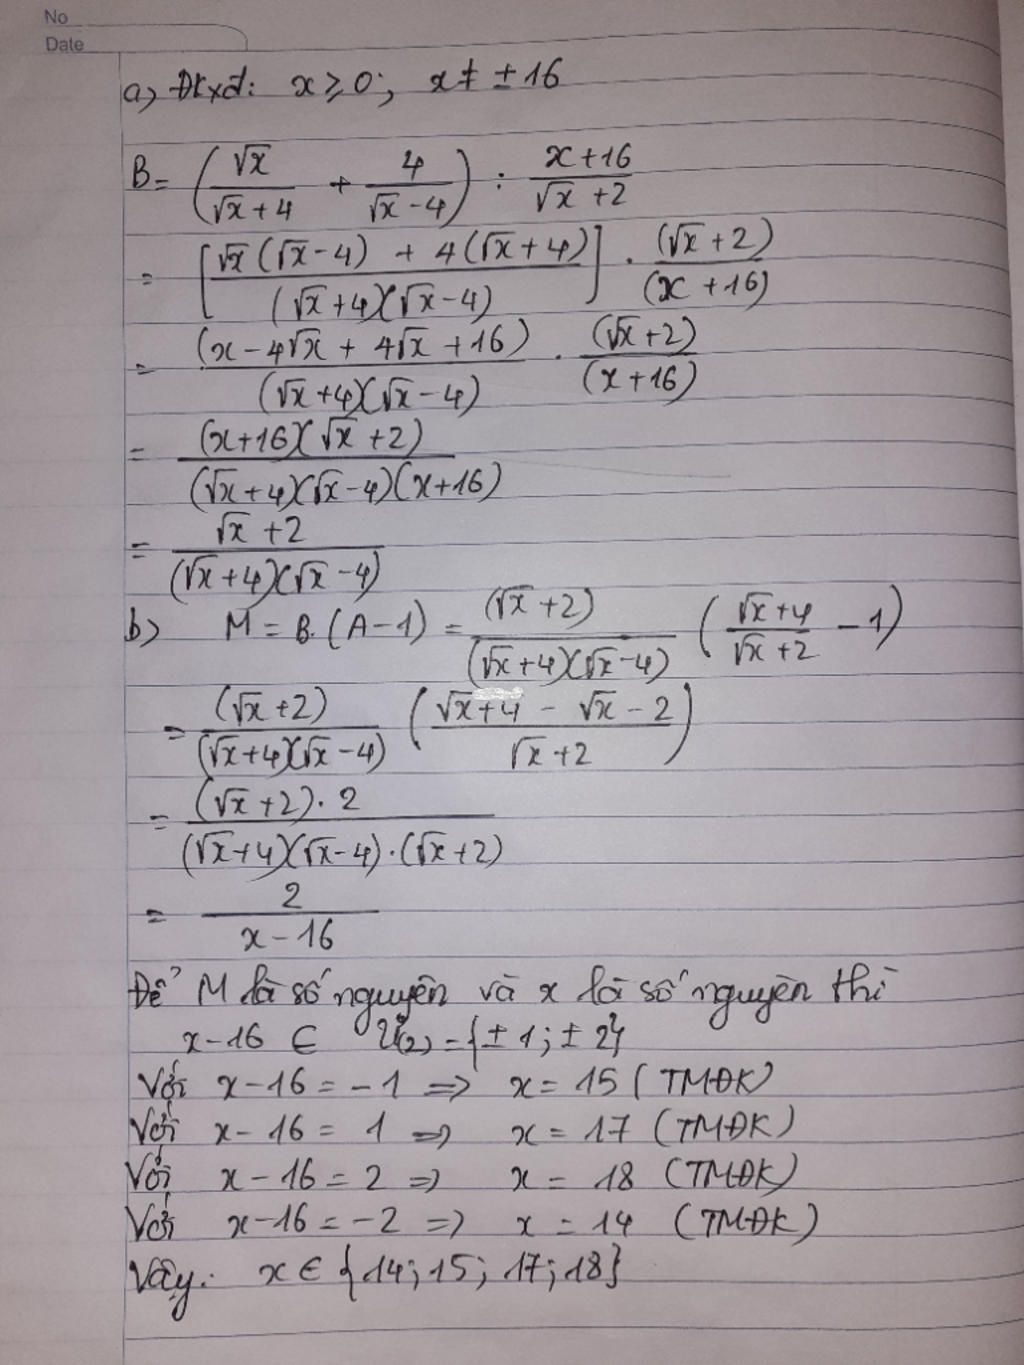 No
Date
a) Đkxđ: x ⩾ 0; x ≠ ± 16
B = (√x/(√x + 4) + 4/(√x - 4)) : (x + 16)/(√x + 2)
= [(√x (√x - 4) + 4(√x + 4))/((√x + 4)(√x - 4))] . (√x + 2)/(x + 16)
= (x - 4√x + 4√x + 16)/((√x + 4)(√x - 4)) . (√x + 2)/(x + 16)
= (x + 16)(√x + 2)/((√x + 4)(√x - 4)(x + 16))
= (√x + 2)/((√x + 4)(√x - 4))
b) M = B. (A - 1) = (√x + 2)/((√x + 4)(√x - 4)) ((√x + 4)/(√x + 2) - 1)
= (√x + 2)/((√x + 4)(√x - 4)) ((√x + 4 - √x - 2)/(√x + 2))
= (√x + 2) . 2/((√x + 4)(√x - 4) . (√x + 2))
= 2/(x - 16)
Để M là số nguyên và x là số nguyên thì
x - 16 ∈ Ư(2) = {± 1; ± 2}
Với x - 16 = - 1 => x = 15 (TMĐK)
Với x - 16 = 1 => x = 17 (TMĐK)
Với x - 16 = 2 => x = 18 (TMĐK)
Với x - 16 = - 2 => x = 14 (TMĐK)
Vậy: x ∈ {14; 15; 17; 18}